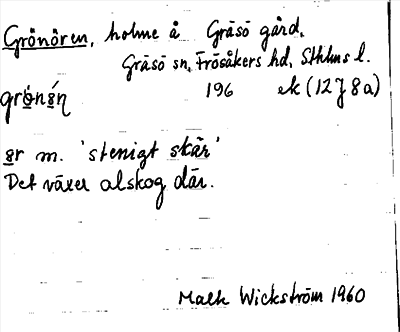 Grönören, holme å Gräsö gård,
Gräsö sn, Frösåkers hd, Sthlms l.
196 ek (12J8a)
grö́nö́n
ör m. 'stenigt skär'
Det växer alskog där.
Maeh Wickström 1960